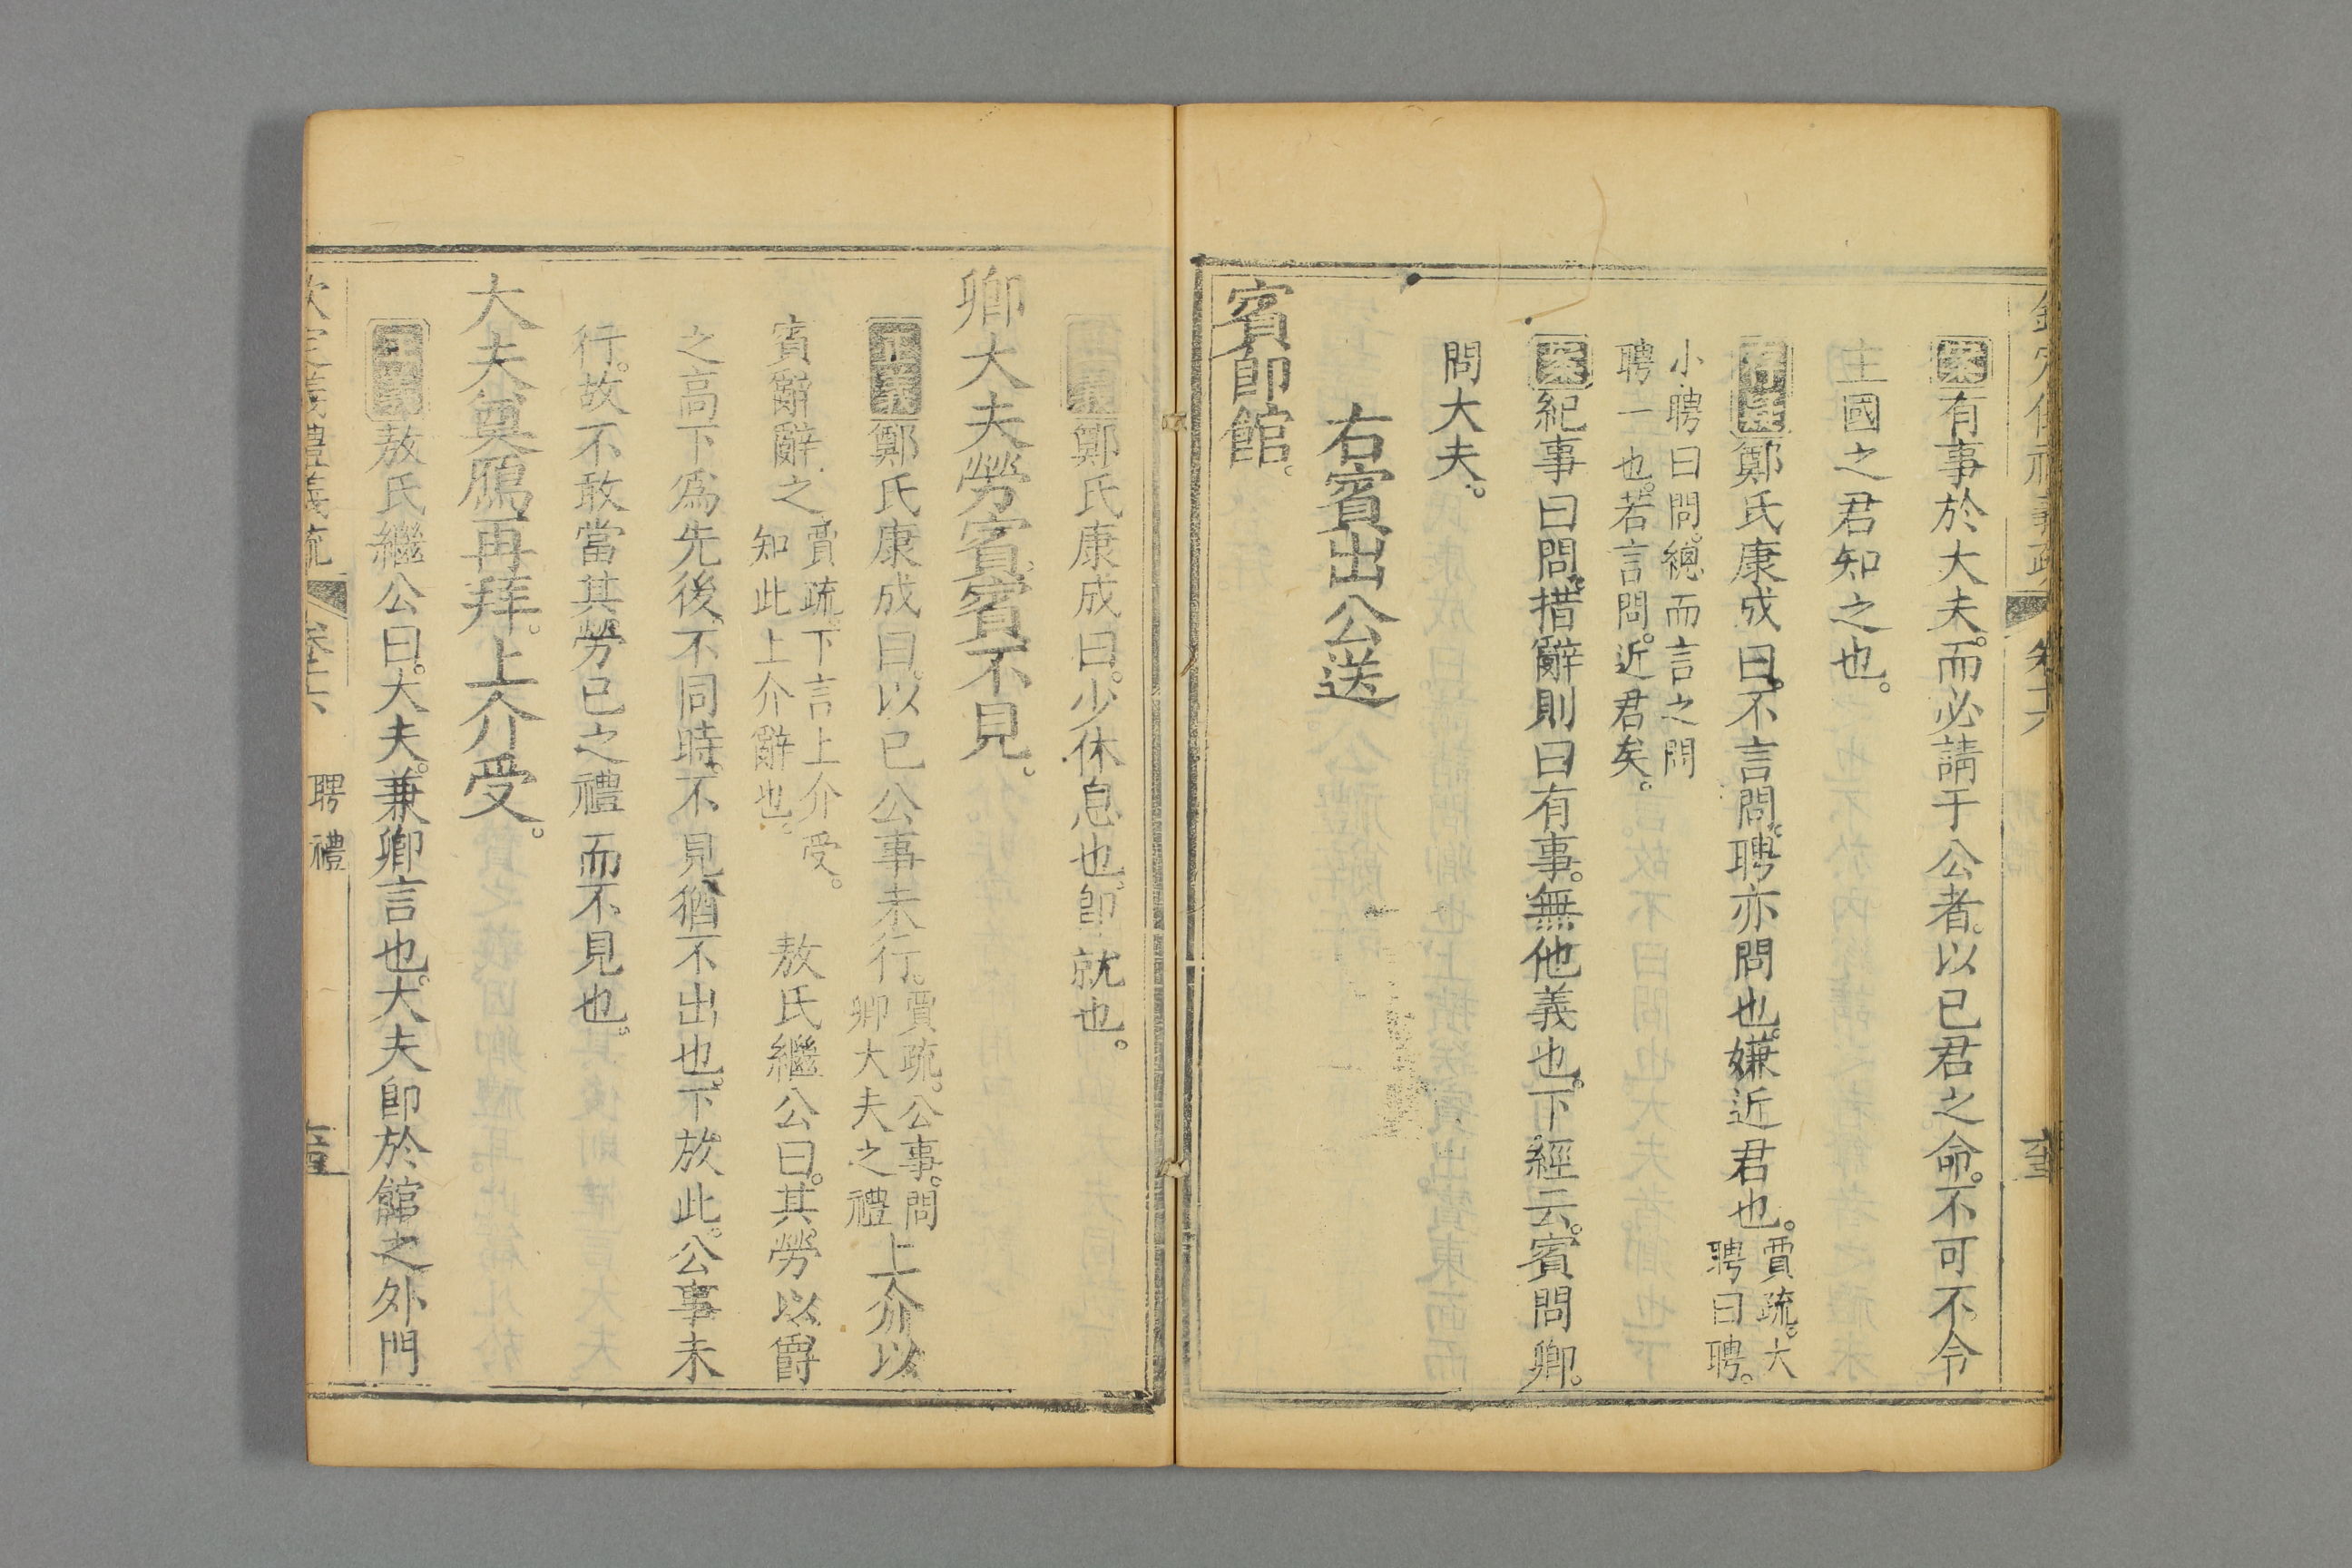 案有事於大夫。而必請于公者。以已君之命。不可不令
主國之君知之也。
鄭氏康成曰。不言問。聘亦問也。嫌近君也。賈疏。大聘曰聘。
小聘曰問。總而言之問聘一也。若言問。近君矣。
案紀事曰問。措辭則曰有事。無他義也。下經云。賓問卿。
問大夫。
右賓出公送
賓即館。
鄭氏康成曰。少休息也。即就也。
卿大夫勞賓。賓不見。
正義鄭氏康成曰。以已公事未行。賈疏。公事。問卿大夫之禮上介以
賓辭辭之賈疏。下言上介受。知此上介辭也。 敖氏繼公曰。其勞以爵
之高下爲先後。不同時。不見。猶不出也。下放此。公事未
行。故不敢當其勞已之禮而不見也。
大夫奠鴈再拜。上介受。
正義敖氏繼公曰。大夫。兼卿言也。大夫即於館之外門
欽定儀禮義疏 卷十六 聘禮